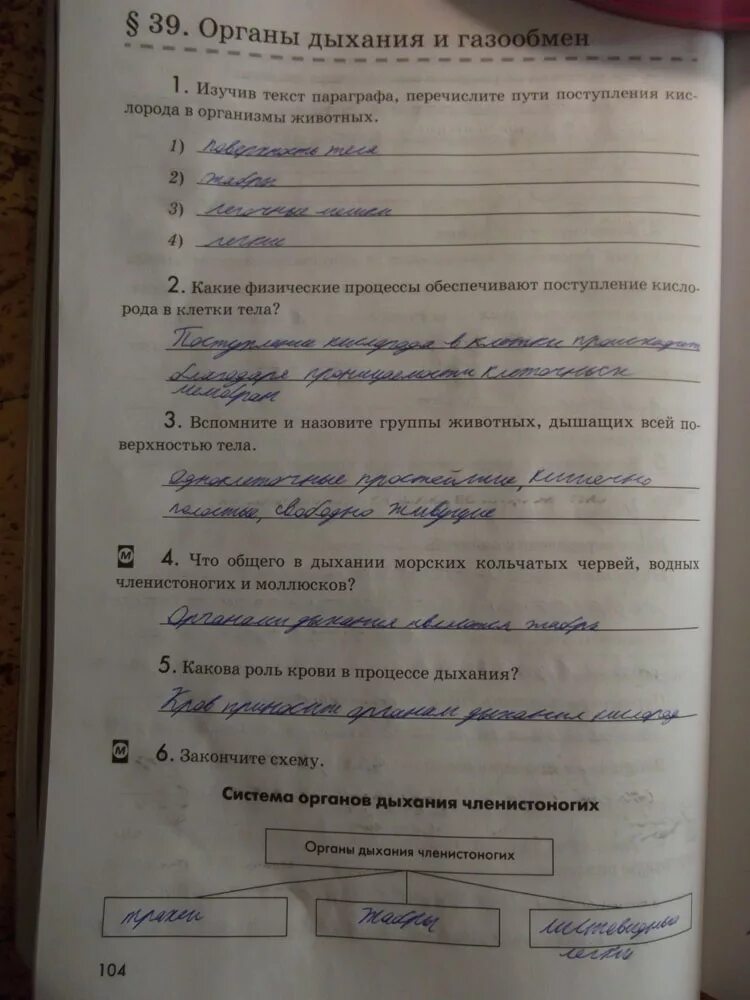 § 39. Органы дыхания и газообмен
1. Изучив текст параграфа, перечислите пути поступления кис-
лорода в организмы животных.
1) поверхность тела
2) жабры
3) легочные мешки
4) легкие
2. Какие физические процессы обеспечивают поступление кисло-
рода в клетки тела?
Поступление кислорода в клетки происходит
благодаря проницаемости клеточных
мембран
3. Вспомните и назовите группы животных, дышащих всей по-
верхностью тела.
Одноклеточные простейшие, кишечно
полостые, свободно живущие
М 4. Что общего в дыхании морских кольчатых червей, водных
членистоногих и моллюсков?
Органами дыхания являются жабры
5. Какова роль крови в процессе дыхания?
Кровь приносит органам дыхания кислород
М 6. Закончите схему.
Система органов дыхания членистоногих
Органы дыхания членистоногих
трахеи
Жабры
листовидные
легкие
104